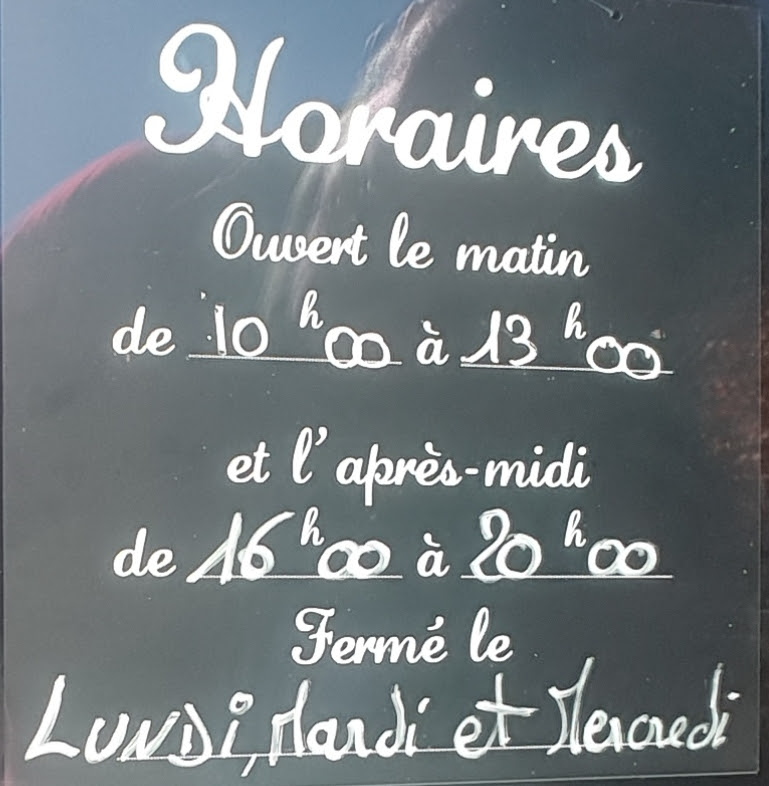 Horaires
Ouvert le matin
de 10 h 00 à 13 h 00
et l'après-midi
de 16 h 00 à 20 h 00
Fermé le
LUNDi, Mardi et Mercredi